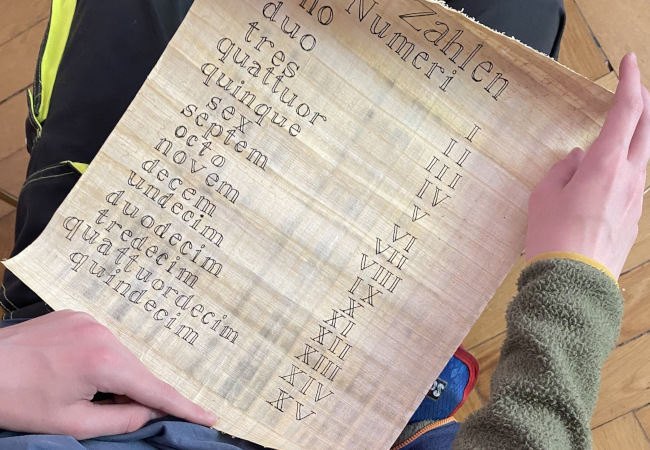 Zahlen
Numeri
no I
duo II
tres III
quattuor IV
quinque V
sex VI
septem VII
octo VIII
novem IX
decem X
undecim XI
duodecim XII
tredecim XIII
quattuordecim XIV
quindecim XV